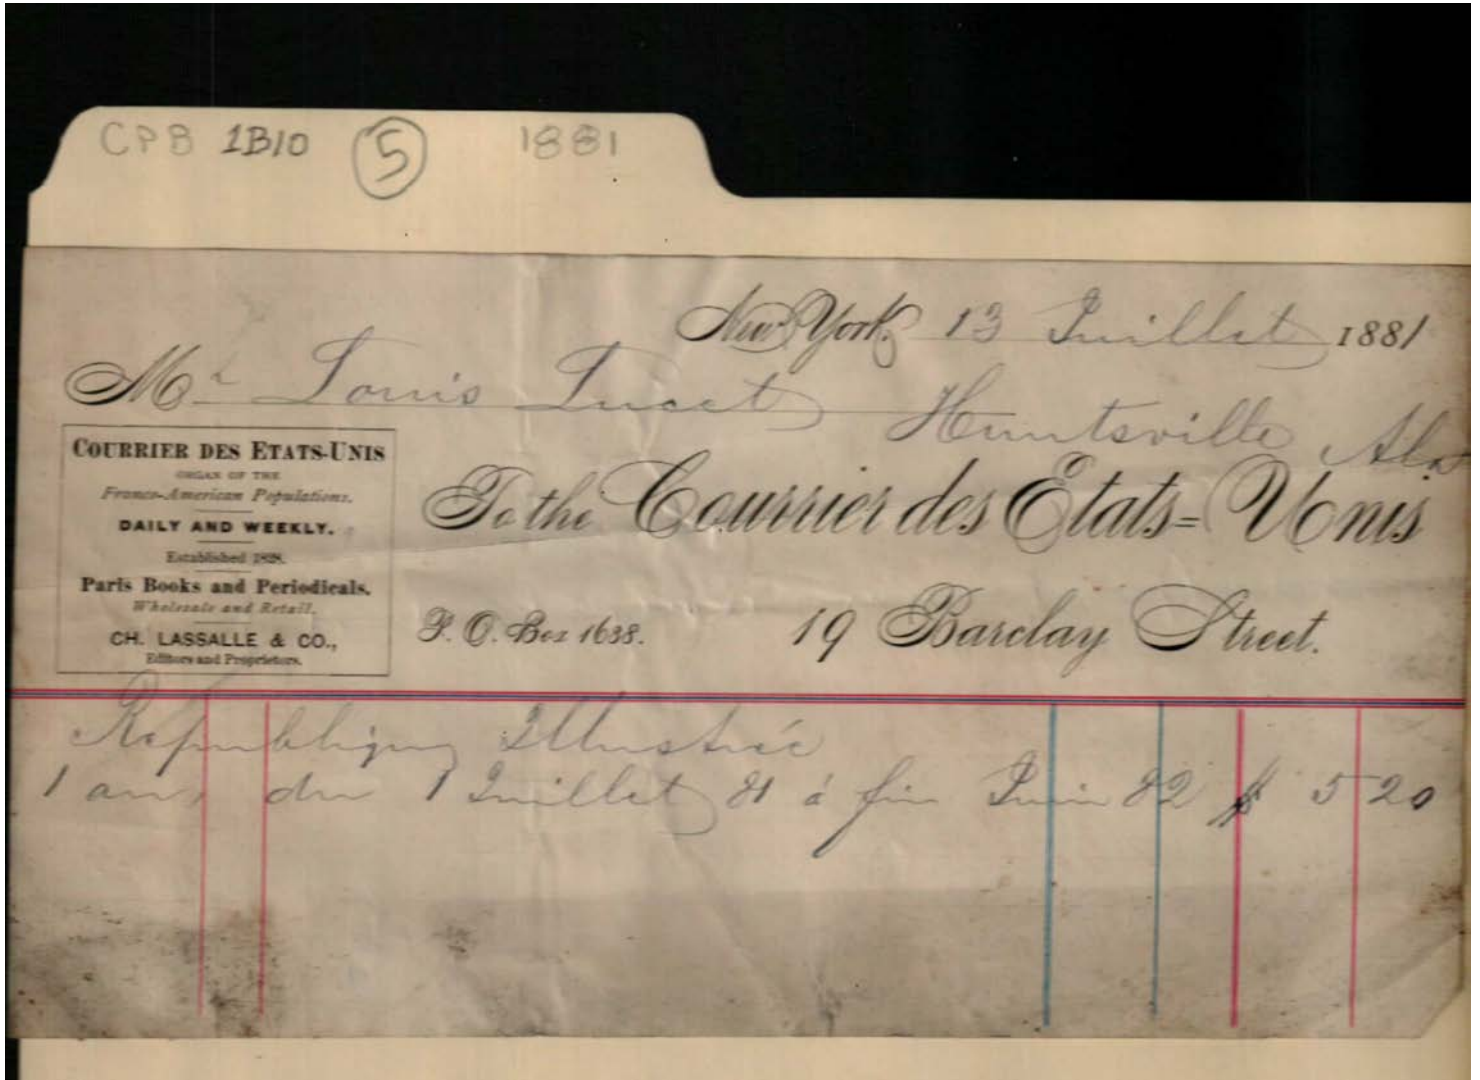 CPB 1B10 5 1881
New York, 13 Juillet 1881
Mr Louis Lucat Huntsville Ala
COURRIER DES ETATS-UNIS
ORGAN OF THE
Franco-American Populations.
DAILY AND WEEKLY.
Established 1828.
Paris Books and Periodicals.
Wholesale and Retail.
CH. LASSALLE & CO.,
Editors and Proprietors.
To the Courrier des Etats=Unis
P. O. Box 1638. 19 Barclay Street.
République Illustrée
1 an, du 1 Juillet 81 à fin Juin 82 $ 5 20